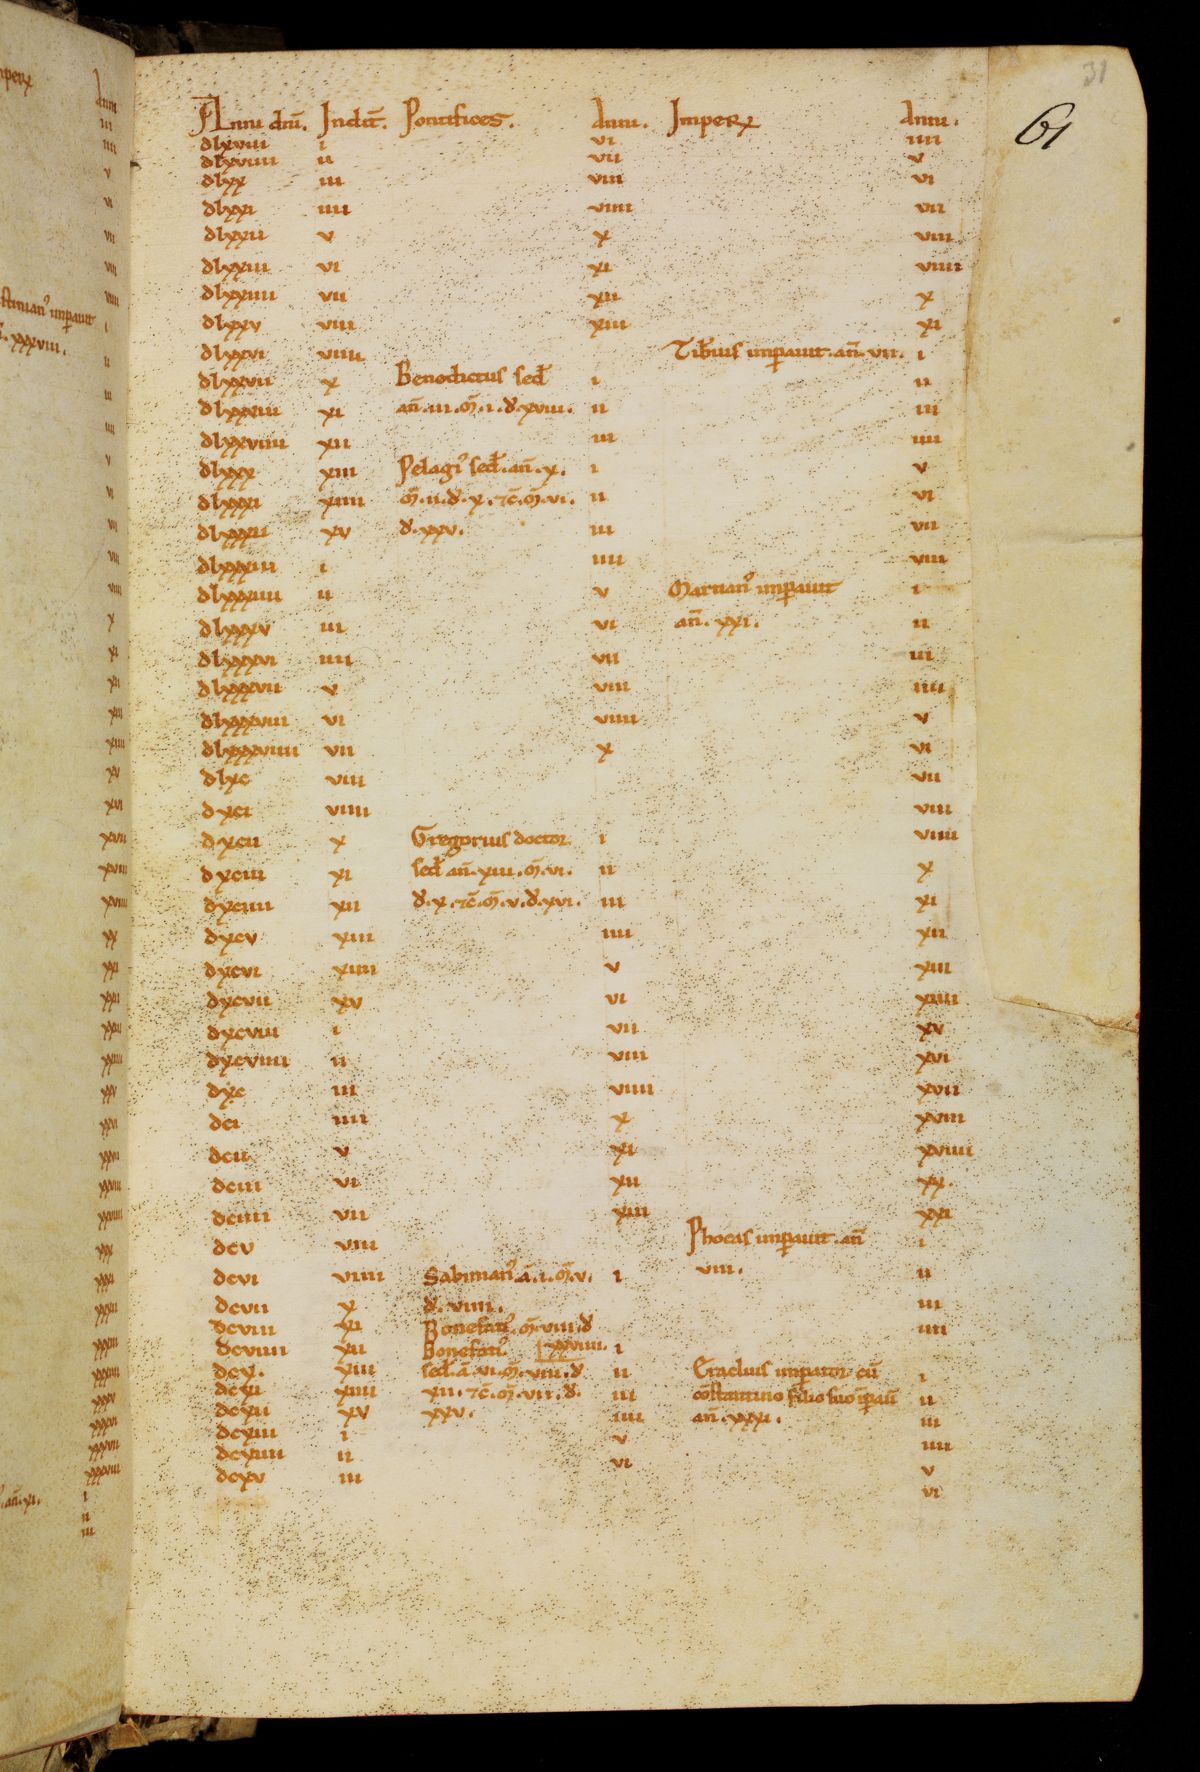 31
61
Anni dñi. Indict̄. Pontifices. Anni. Imperꝝ Anni.
dlxviii i vi iiii
dlxviiii ii vii v
dlxx iii viii vi
dlxxi iiii viiii vii
dlxxii v x viii
dlxxiii vi xi viiii
dlxxiiii vii xii x
dlxxv viii xiii xi
dlxxvi viiii Tibius impauit. añ. vii. i
dlxxvii x Benedictus sed̄ i ii
dlxxviii xi añ. iii. m̄. i. d̄. xviii. ii iii
dlxxviiii xii iii iiii
dlxxx xiii Pelagi᾿ sed̄. añ. x. i v
dlxxxi xiiii m̄. ii. d̄. x. ⁊ c̄. m̄. vi. ii vi
dlxxxii xv d̄. xxv. iii vii
dlxxxiii i iiii viii
dlxxxiiii ii v Martian᾿ impauit i
dlxxxv iii vi añ. xxi. ii
dlxxxvi iiii vii iii
dlxxxvii v viii iiii
dlxxxviii vi viiii v
dlxxxviiii vii x vi
dlxc viii vii
dxci viiii viii
dxcii x Gregorius doctor i viiii
dxciii xi sed̄ añ. xiii. m̄. vi. ii x
dxciiii xii d̄. x. ⁊ c̄. m̄. v. d̄. xvi. iii xi
dxcv xiii iiii xii
dxcvi xiiii v xiii
dxcvii xv vi xiiii
dxcviii i vii xv
dxcviiii ii viii xvi
dxc iii viiii xvii
dci iiii x xviii
dcii v xi xviiii
dciii vi xii xx.
dciiii vii xiii xxi
dcv viii Phocas impauit. añ i
dcvi viiii Sabinian᾿. ā. i. m̄. v. i viii. ii
dcvii x d̄. viiii. iii
dcviii xi Bonefati᾿. m̄. viii. d̄ iiii
dcviiii xii Bonefati᾿. xxviiii. i
dcx. xiii sed̄. ā. vi. m̄. viii. d̄ ii Eraclius impator cū i
dcxi xiiii xii. ⁊ c̄. m̄. vii. d̄. iii cōstantino filio suo īpau̅ ii
dcxii xv xxv. iiii añ. xxxi. iii
dcxiii i v iiii
dcxiiii ii vi v
dcxv iii vi